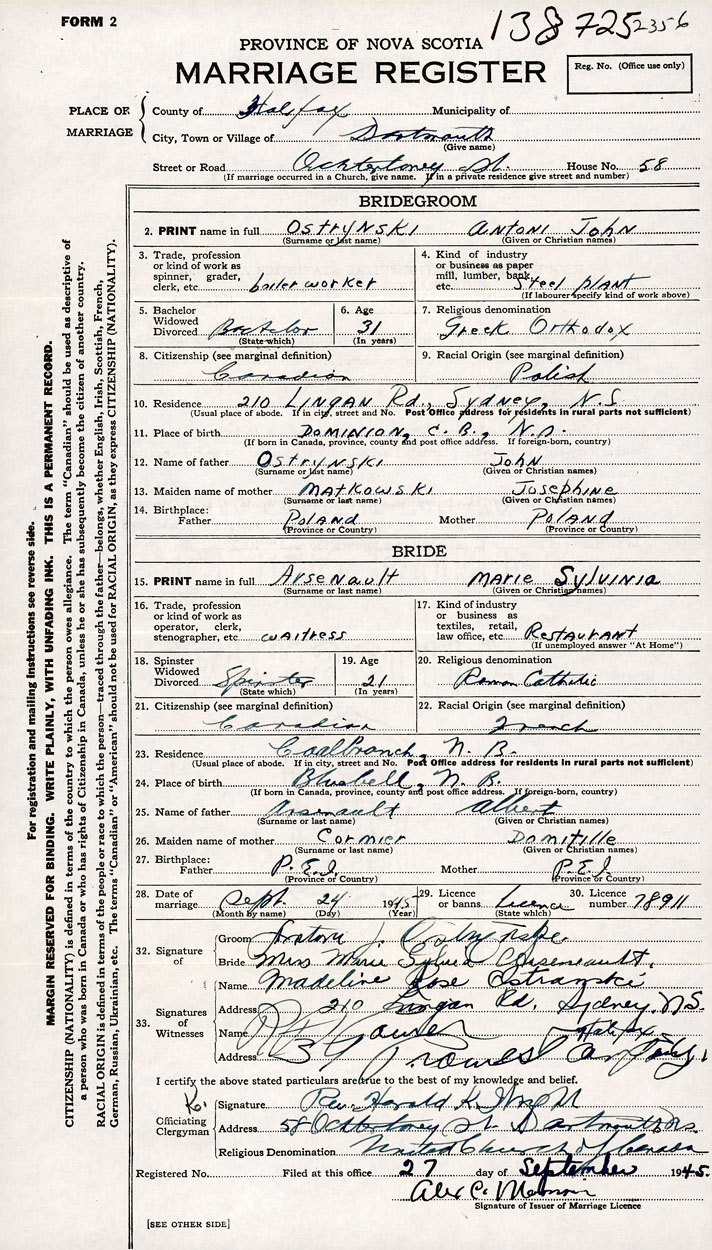 FORM 2
138 725 2356
PROVINCE OF NOVA SCOTIA
MARRIAGE REGISTER
Reg. No. (Office use only)
PLACE OF MARRIAGE
County of Halifax Municipality of
City, Town or Village of Dartmouth
(Give name)
Street or Road Ochterloney St. House No. 58
(If marriage occurred in a Church, give name. If in a private residence give street and number)
BRIDEGROOM
2. PRINT name in full OSTRYNSKI ANTONI JOHN
(Surname or last name) (Given or Christian names)
3. Trade, profession or kind of work as spinner, grader, clerk, etc. boiler worker
4. Kind of industry or business as paper mill, lumber, bank, etc. Steel plant
(If labourer specify kind of work above)
5. Bachelor Widowed Divorced Bachelor
(State which)
6. Age 31
(In years)
7. Religious denomination
Greek Orthodox
8. Citizenship (see marginal definition)
Canadian
9. Racial Origin (see marginal definition)
Polish
10. Residence 210 LINGAN Rd., SYDNEY, N.S
(Usual place of abode. If in city, street and No. Post Office address for residents in rural parts not sufficient)
11. Place of birth DOMINION, C.B., N.S.
(If born in Canada, province, county and post office address. If foreign-born, country)
12. Name of father OSTRYNSKI JOHN
(Surname or last name) (Given or Christian names)
13. Maiden name of mother MATKOWSKI JOSEPHINE
(Surname or last name) (Given or Christian names)
14. Birthplace: Father POLAND Mother POLAND
(Province or Country) (Province or Country)
BRIDE
15. PRINT name in full Arsenault MARIE SYLVINIA
(Surname or last name) (Given or Christian names)
16. Trade, profession or kind of work as operator, clerk, stenographer, etc. waitress
17. Kind of industry or business as textiles, retail, law office, etc. RESTAURANT
(If unemployed answer "At Home")
18. Spinster Widowed Divorced Spinster
(State which)
19. Age 21
(In years)
20. Religious denomination
Roman Catholic
21. Citizenship (see marginal definition)
Canadian
22. Racial Origin (see marginal definition)
French
23. Residence Coalbranch, N.B.
(Usual place of abode. If in city, street and No. Post Office address for residents in rural parts not sufficient)
24. Place of birth Bluebell, N.B.
(If born in Canada, province, county and post office address. If foreign-born, country)
25. Name of father Arsenault Albert
(Surname or last name) (Given or Christian names)
26. Maiden name of mother Cormier Domitille
(Surname or last name) (Given or Christian names)
27. Birthplace: Father P.E.I. Mother P.E.I.
(Province or Country) (Province or Country)
28. Date of marriage Sept. 24 1945
(Month by name) (Day) (Year)
29. Licence or banns Licence
(State which)
30. Licence number 78911
32. Signature of
Groom
Bride Miss Marie Sylvia Arseneault.
33. Signatures of Witnesses
Name Madeline Rose Ostranski
Address 210 Lingan Rd, Sydney. N.S.
Name
Address
I certify the above stated particulars are true to the best of my knowledge and belief.
Officiating Clergyman
Signature Rev. Harold K.
Address 58 Ochterloney St. Dartmouth N.S.
Religious Denomination United Church of Canada
Registered No. Filed at this office 27 day of September 1945.
Alex C.
Signature of Issuer of Marriage Licence
[SEE OTHER SIDE]
For registration and mailing instructions see reverse side.
MARGIN RESERVED FOR BINDING. WRITE PLAINLY, WITH UNFADING INK. THIS IS A PERMANENT RECORD.
CITIZENSHIP (NATIONALITY) is defined in terms of the country to which the person owes allegiance. The term "Canadian" should be used as descriptive of
a person who was born in Canada or who has rights of Citizenship in Canada, unless he or she has subsequently become the citizen of another country.
RACIAL ORIGIN is defined in terms of the people or race to which the person—traced through the father—belongs, whether English, Irish, Scottish, French,
German, Russian, Ukrainian, etc. The terms "Canadian" or "American" should not be used for RACIAL ORIGIN, as they express CITIZENSHIP (NATIONALITY).